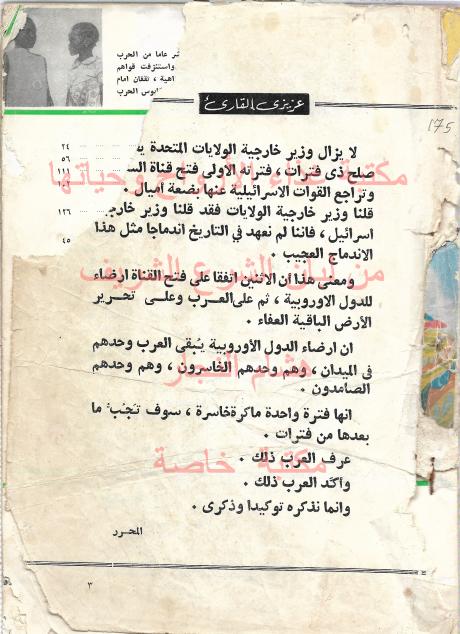 عاما من الحرب
واستنزفت قواهم
تقفان امام
الحرب
عزيزى القارئ
175
لا يزال وزير خارجية الولايات المتحدة
صلح ذى فترات ، فترته الأولى فتح قناة
وتراجع القوات الاسرائيلية عنها بضعة أميال .
قلنا وزير خارجية الولايات فقد قلنا وزير
اسرائيل ، فاننا لم نعهد فى التاريخ اندماجا مثل هذا
الاندماج العجيب .
ومعنى هذا أن الاثنين اتفقا على فتح القناة ارضاء
للدول الاوروبية ، ثم على العرب وعلى تحرير
الأرض الباقية العفاء .
ان ارضاء الدول الأوروبية يُبقى العرب وحدهم
فى الميدان ، وهم وحدهم الخاسرون ، وهم وحدهم
الصامدون .
انها فترة واحدة ماكرة خاسرة ، سوف تجُبّ ما
بعدها من فترات .
عرف العرب ذلك .
وأكد العرب ذلك .
وانما نذكره توكيدا وذكرى .
المحرر
٣
٢٤
٥٦
١١١
١٢٦
٤٥
مكتبة
من
الشرع الشريف
هشام
مكتبة خاصة